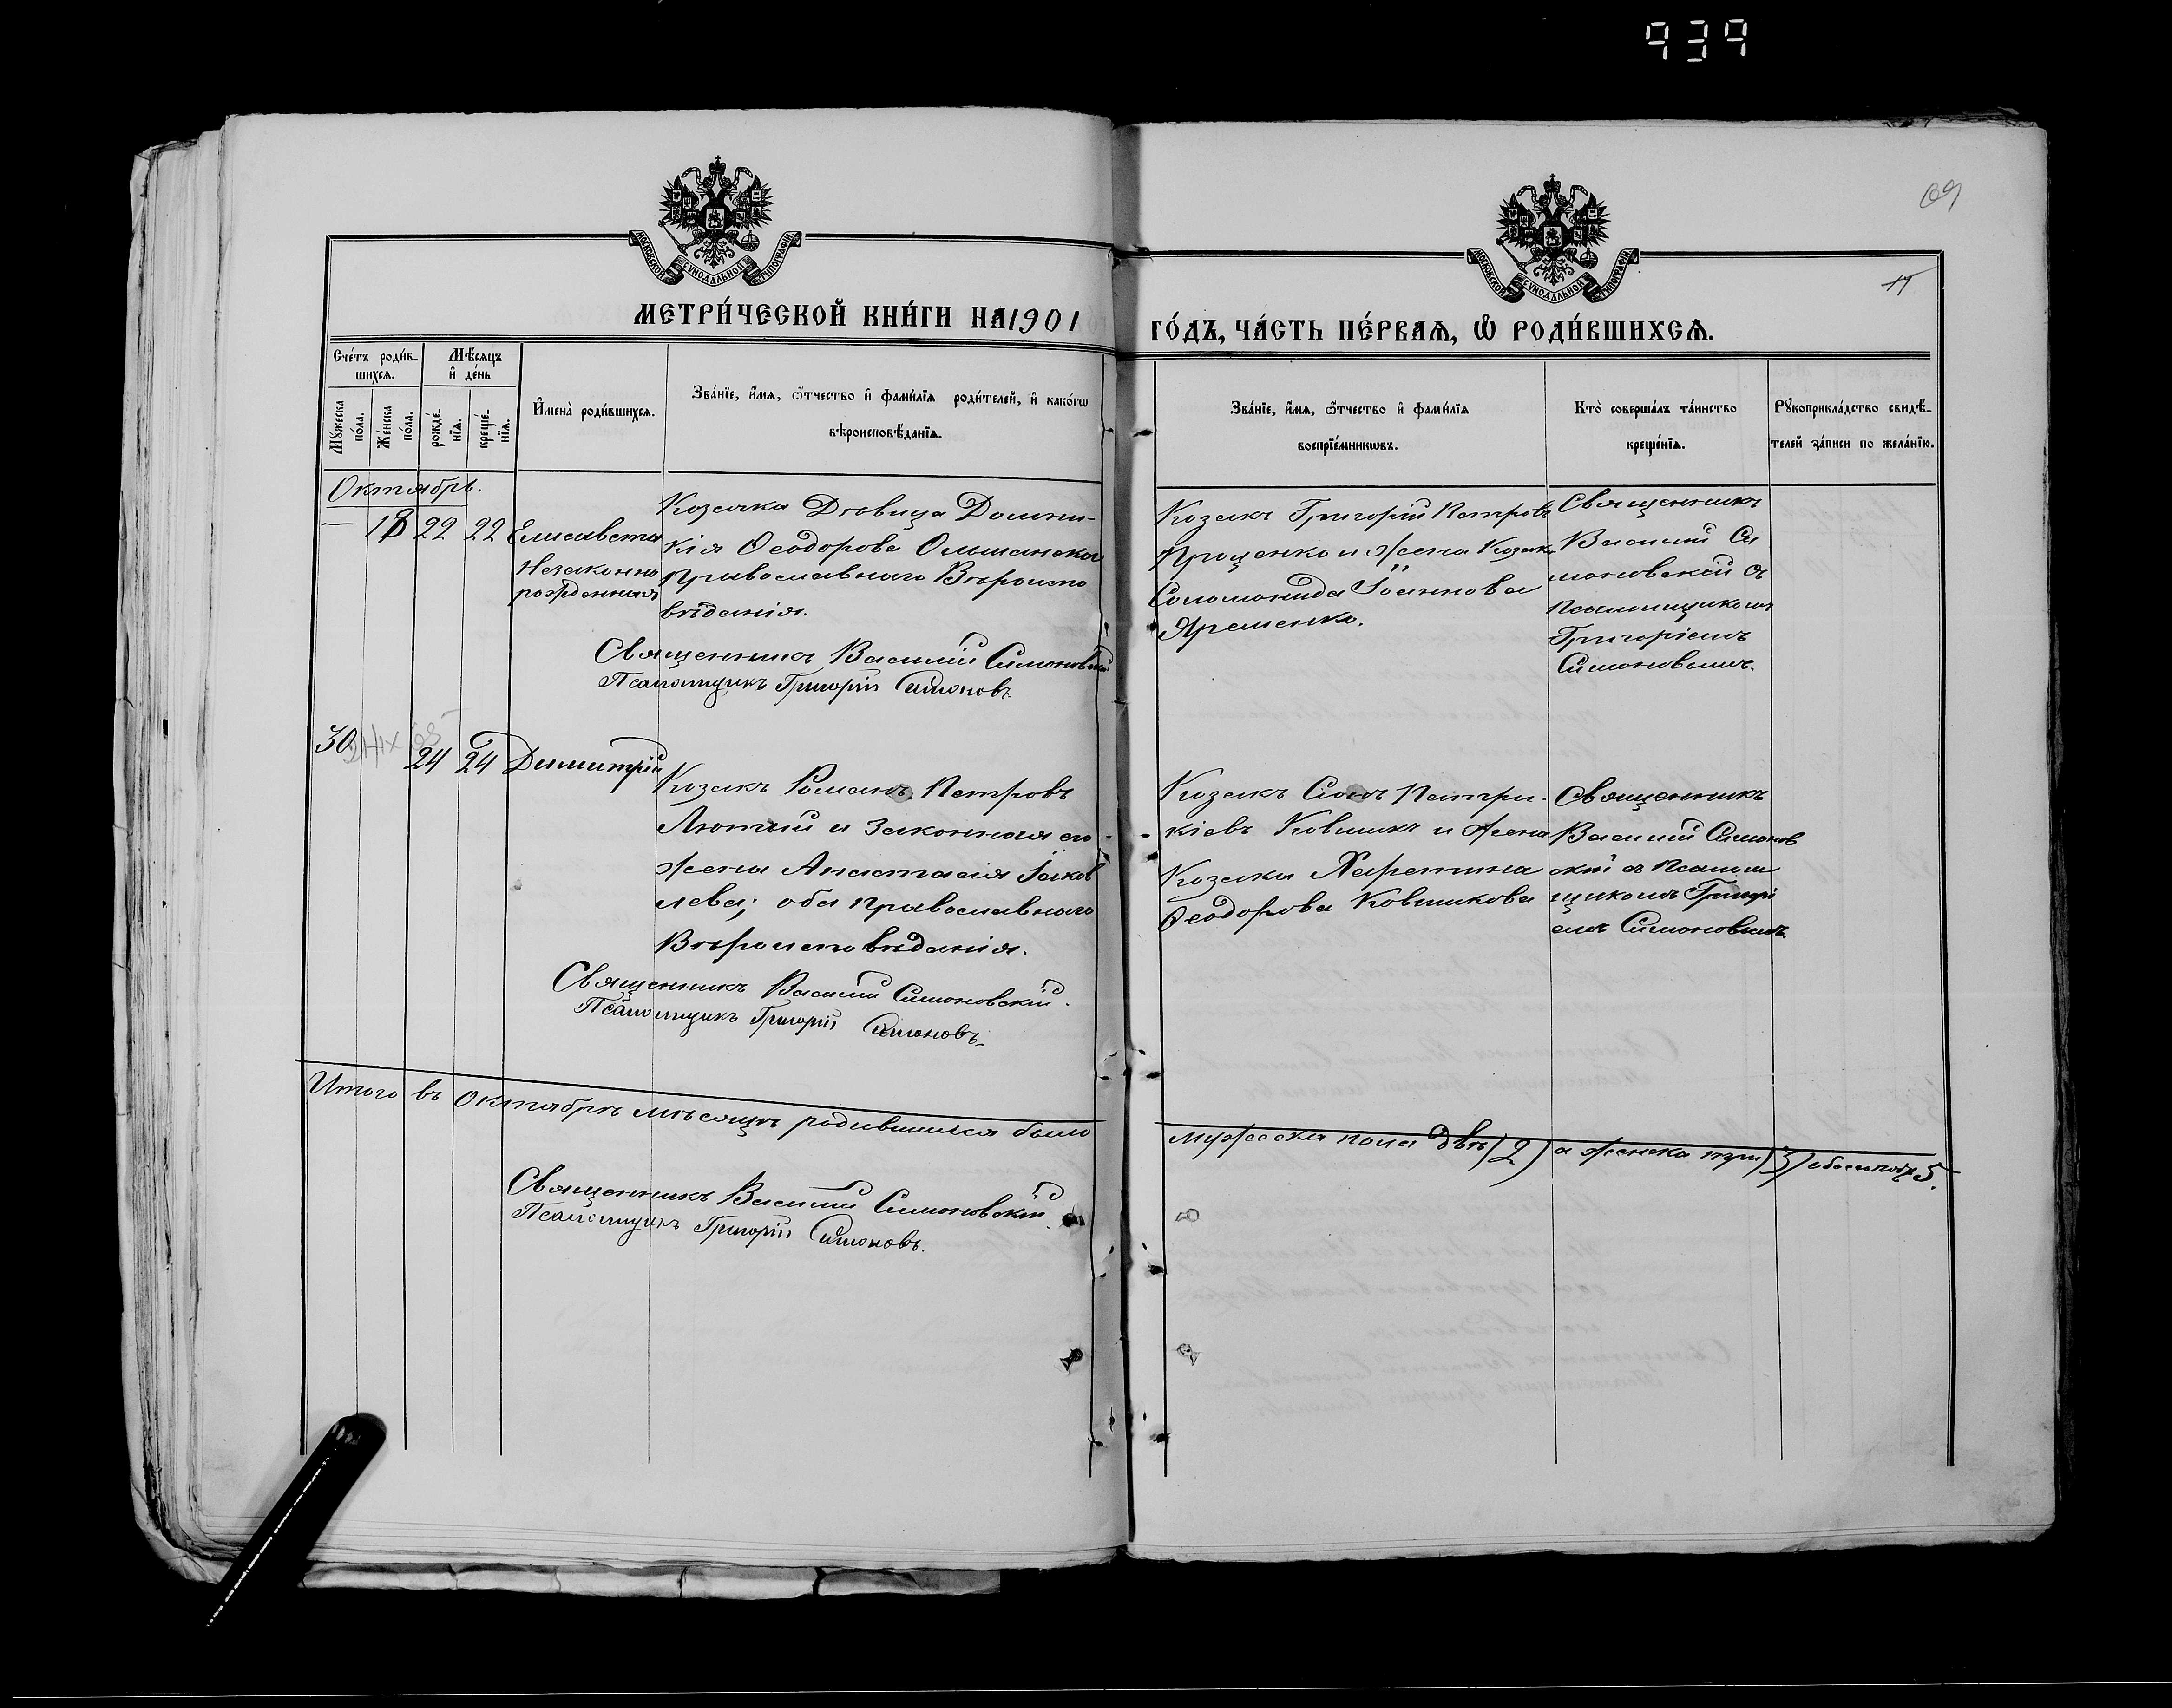 939
69
17
МОСКОВСКОЙ СѴНОДАЛЬНОЙ ТИПОГРАФІИ
МОСКОВСКОЙ СѴНОДАЛЬНОЙ ТИПОГРАФІИ
МЕТРИ́ЧЕСКОЙ КНИ́ГИ НА 1901
ГО́ДЪ, ЧА́СТЬ ПЕ́РВАѦ, Ѡ҆ РОДИ́ВШИХСѦ.
Сче́тъ роди́в-
шихсѧ.
Мѣ́сѧцъ
и҆ де́нь
Мꙋ́жеска
по́ла.
Же́нска
по́ла.
рожде́-
нїѧ.
креще́-
нїѧ.
И҆мена̀ роди́вшихсѧ.
Зва́нїе, и҆́мѧ, ѻ҆́тчество и҆ фами́лїѧ роди́телей, и҆ како́гѡ
вѣроисповѣ́данїѧ.
Зва́нїе, и҆́мѧ, ѻ҆́тчество и҆ фами́лїѧ
воспрїе́мникѡвъ.
Кто̀ соверша́лъ та́инство
креще́нїѧ.
Рꙋкоприкла́дство свидѣ́-
телей за́писи по жела́нїю.
Октябрь.
— 18 22 22 Елисавета
Незаконно
рожденная
Козачка Дѣвица Домни-
кія Ѳеодорова Ольшанская
Православнаго Вѣроиспо
вѣданія.
Священникъ Василій Симоновскій
Псаломщикъ Григорій Симоновъ.
Козакъ Григорій Петровъ
Проценко и жена Козака
Соломонида Іоаннова
Яременко.
Священникъ
Василій Си
моновскій съ
Псаломщикомъ
Григоріемъ
Симоновымъ.
30 24 24 Димитрій
Козакъ Романъ Петровъ
Лютый и законная его
жена Анастасія Іаков
лева; оба православнаго
Вѣроисповѣданія.
Священникъ Василій Симоновскій.
Псаломщикъ Григорій Симоновъ.
Козакъ Петри-
кіевъ Ковшикъ и жена
Козака Харитина
Ѳеодорова Ковшикова
Священникъ
Василій Симонов
скій съ Псалом
щикомъ Григорі
емъ Симоновымъ.
Итого въ Октябрѣ мѣсяцѣ родившихся было
мужеска пола двѣ (2) а женска три (3) обоего пола 5.
Священникъ Василій Симоновскій.
Псаломщикъ Григорій Симоновъ.